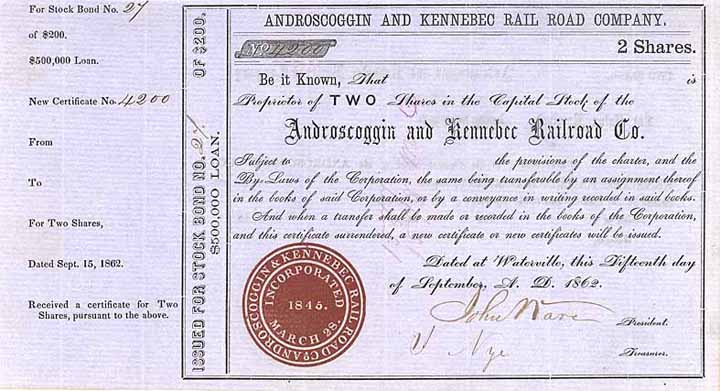 For Stock Bond No. 27
of $200.
$500,000 Loan.
New Certificate No. 4200
From
To
For Two Shares,
Dated Sept. 15, 1862.
Received a certificate for Two
Shares, pursuant to the above.
ISSUED FOR STOCK BOND NO. 27. OF $200.
$500,000 LOAN.
ANDROSCOGGIN AND KENNEBEC RAIL ROAD COMPANY.
No 4200
2 Shares.
Be it Known, That is
Proprietor of TWO Shares in the Capital Stock of the
Androscoggin and Kennebec Railroad Co.
Subject to the provisions of the charter, and the
By-Laws of the Corporation, the same being transferable by an assignment thereof
in the books of said Corporation, or by a conveyance in writing recorded in said books.
And when a transfer shall be made or recorded in the books of the Corporation,
and this certificate surrendered, a new certificate or new certificates will be issued.
Dated at Waterville, this Fifteenth day
of September, A. D. 1862.
ANDROSCOGGIN & KENNEBEC RAIL ROAD Co
INCORPORATED
1845.
MARCH 28.
John Ware
President.
Nye
Treasurer.